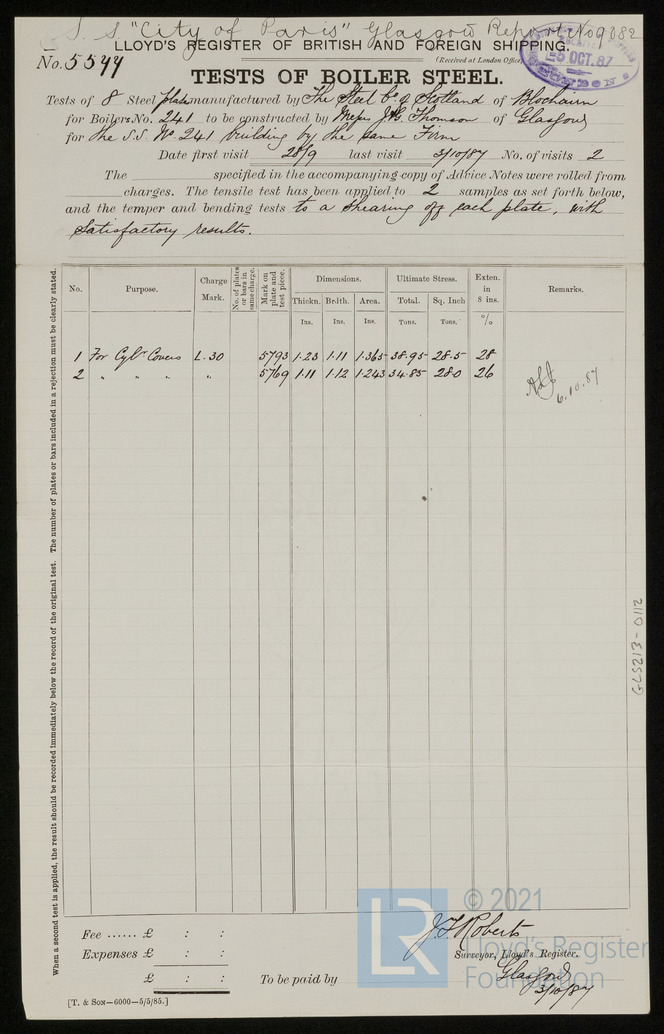 S. S. "City of Paris" Glasgow Report No 9882
LLOYD'S REGISTER OF BRITISH AND FOREIGN SHIPPING.
No. 5544
(Received at London Office
5 OCT. 87
TESTS OF BOILER STEEL.
Tests of 8 Steel plates manufactured by The Steel Co of Scotland of Blochairn
for Boilers No. 241 to be constructed by Messrs J & G Thomson of Glasgow
for the S.S. No 241 building by the same Firm
Date first visit 28/9 last visit 3/10/87 No. of visits 2
The specified in the accompanying copy of Advice Notes were rolled from
charges. The tensile test has been applied to 2 samples as set forth below,
and the temper and bending tests to a shearing off each plate, with
satisfactory results.
No. Purpose. Charge Mark. No. of plates or bars in same charge. Mark on plate and test piece. Dimensions. Ultimate Stress. Exten. in 8 ins. Remarks.
Thickn. Brdth. Area. Total. Sq. Inch
Ins. Ins. Ins. Tons. Tons. %
1 For Cylr Covers L.30 5793 1.23 1.11 1.365 38.95 28.5 28
2 " " " " 5769 1.11 1.12 1.243 34.85 28.0 26
6.10.87
When a second test is applied, the result should be recorded immediately below the record of the original test. The number of plates or bars included in a rejection must be clearly stated.
GLS213-0112
Fee ...... £ : :
Expenses £ : :
£ : :
To be paid by
J T Roberts
Surveyor, Lloyd's Register.
Glasgow
3/10/87
[T. & SON—6000—5/5/85.]
LR
© 2021
Lloyd's Register
Foundation